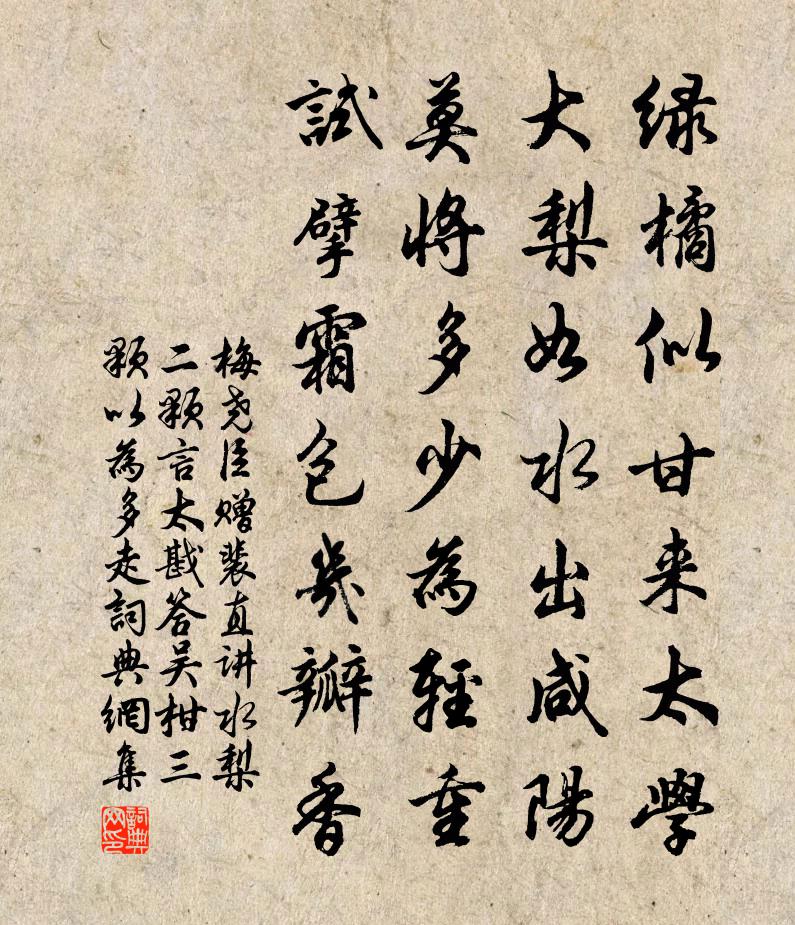 绿橘似甘来太學
大梨如水出咸陽
莫将多少為輕重
試擘霜包幾瓣香
梅尧臣赠裴直讲水梨
二颗言太戱答吴柑三
颗以為多走詞典網集
詞典网印